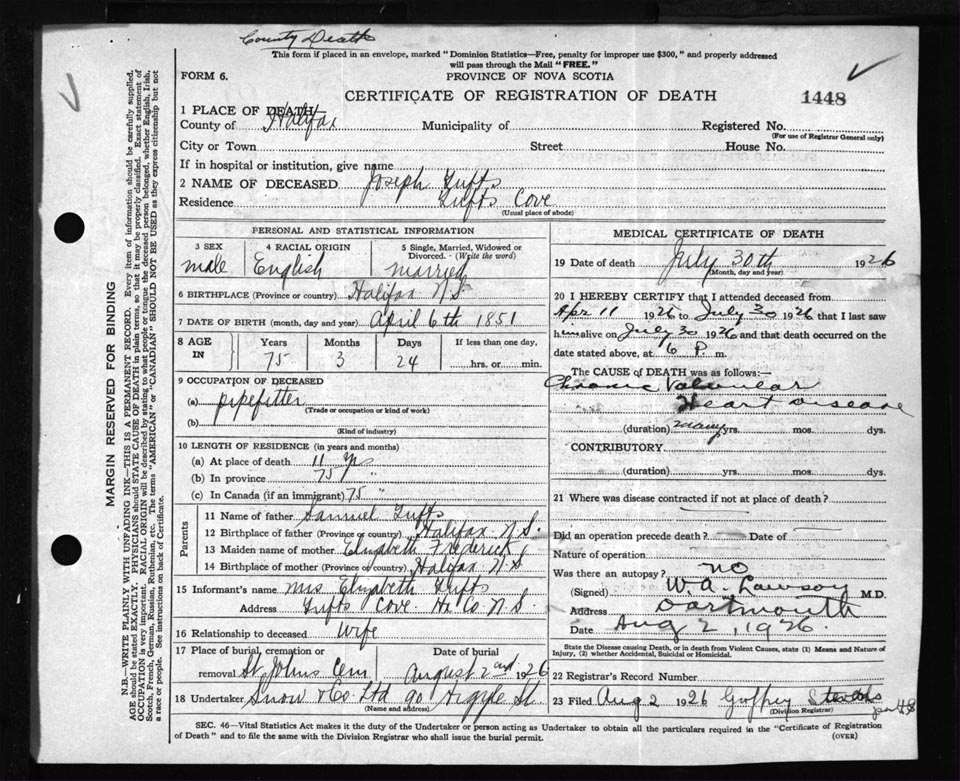 County Death
This form if placed in an envelope, marked "Dominion Statistics—Free, penalty for improper use $300," and properly addressed
will pass through the Mail "FREE."
FORM 6.
PROVINCE OF NOVA SCOTIA
CERTIFICATE OF REGISTRATION OF DEATH
1448
1 PLACE OF DEATH
County of Halifax Municipality of Registered No.
(For use of Registrar General only)
City or Town Street House No.
If in hospital or institution, give name
2 NAME OF DECEASED Joseph Tufts
Residence Tufts Cove
(Usual place of abode)
PERSONAL AND STATISTICAL INFORMATION
3 SEX 4 RACIAL ORIGIN 5 Single, Married, Widowed or Divorced. (Write the word)
male English married
6 BIRTHPLACE (Province or country) Halifax N.S.
7 DATE OF BIRTH (month, day and year) April 6th 1851
8 AGE IN Years Months Days If less than one day,
75 3 24 hrs. or min.
9 OCCUPATION OF DECEASED
(a) pipefitter
(Trade or occupation or kind of work)
(b)
(Kind of industry)
10 LENGTH OF RESIDENCE (in years and months)
(a) At place of death 11 yrs
(b) In province 75 "
(c) In Canada (if an immigrant) 75 "
Parents
11 Name of father Samuel Tufts
12 Birthplace of father (Province or country) Halifax N.S.
13 Maiden name of mother Elizabeth Frederick
14 Birthplace of mother (Province or country) Halifax N.S
15 Informant's name Mrs Elizabeth Tufts
Address Tufts Cove Hx Co. N.S.
16 Relationship to deceased Wife
17 Place of burial, cremation or removal Date of burial
St Johns Cem August 2nd 1926
18 Undertaker Snow & Co. Ltd 90 Argyle St.
(Name and address)
MEDICAL CERTIFICATE OF DEATH
19 Date of death July 30th 1926
(Month, day and year)
20 I HEREBY CERTIFY that I attended deceased from
Apr 11 1926 to July 30 1926 that I last saw
him alive on July 30 1926 and that death occurred on the
date stated above, at 6 P. m.
The CAUSE of DEATH was as follows:—
Chronic Valvular
Heart disease
(duration) many yrs. mos. dys.
CONTRIBUTORY
(duration) yrs. mos. dys.
21 Where was disease contracted if not at place of death?
Did an operation precede death? Date of
Nature of operation
Was there an autopsy? NO
(Signed) W. A. Lawson M.D.
Address Dartmouth
Date Aug 2, 1926
State the Disease causing Death, or in death from Violent Causes, state (1) Means and Nature of
Injury, (2) whether Accidental, Suicidal or Homicidal.
22 Registrar's Record Number
23 Filed Aug 2 1926
(Division Registrar)
SEC. 46—Vital Statistics Act makes it the duty of the Undertaker or person acting as Undertaker to obtain all the particulars required in the "Certificate of Registration
of Death" and to file the same with the Division Registrar who shall issue the burial permit.
(OVER)
MARGIN RESERVED FOR BINDING
N.B.—WRITE PLAINLY WITH UNFADING INK—THIS IS A PERMANENT RECORD. Every item of information should be carefully supplied.
AGE should be stated EXACTLY. PHYSICIANS should STATE CAUSE OF DEATH in plain terms, so that it may be properly classified. Exact statement of
OCCUPATION is very important. RACIAL ORIGIN will be described by stating to what people or tongue the deceased person belonged, whether English, Irish,
Scotch, French, German, Russian, Ruthenian, etc. The terms "AMERICAN" or "CANADIAN" SHOULD NOT BE USED as they express citizenship but not
a race or people. See instructions on back of Certificate.